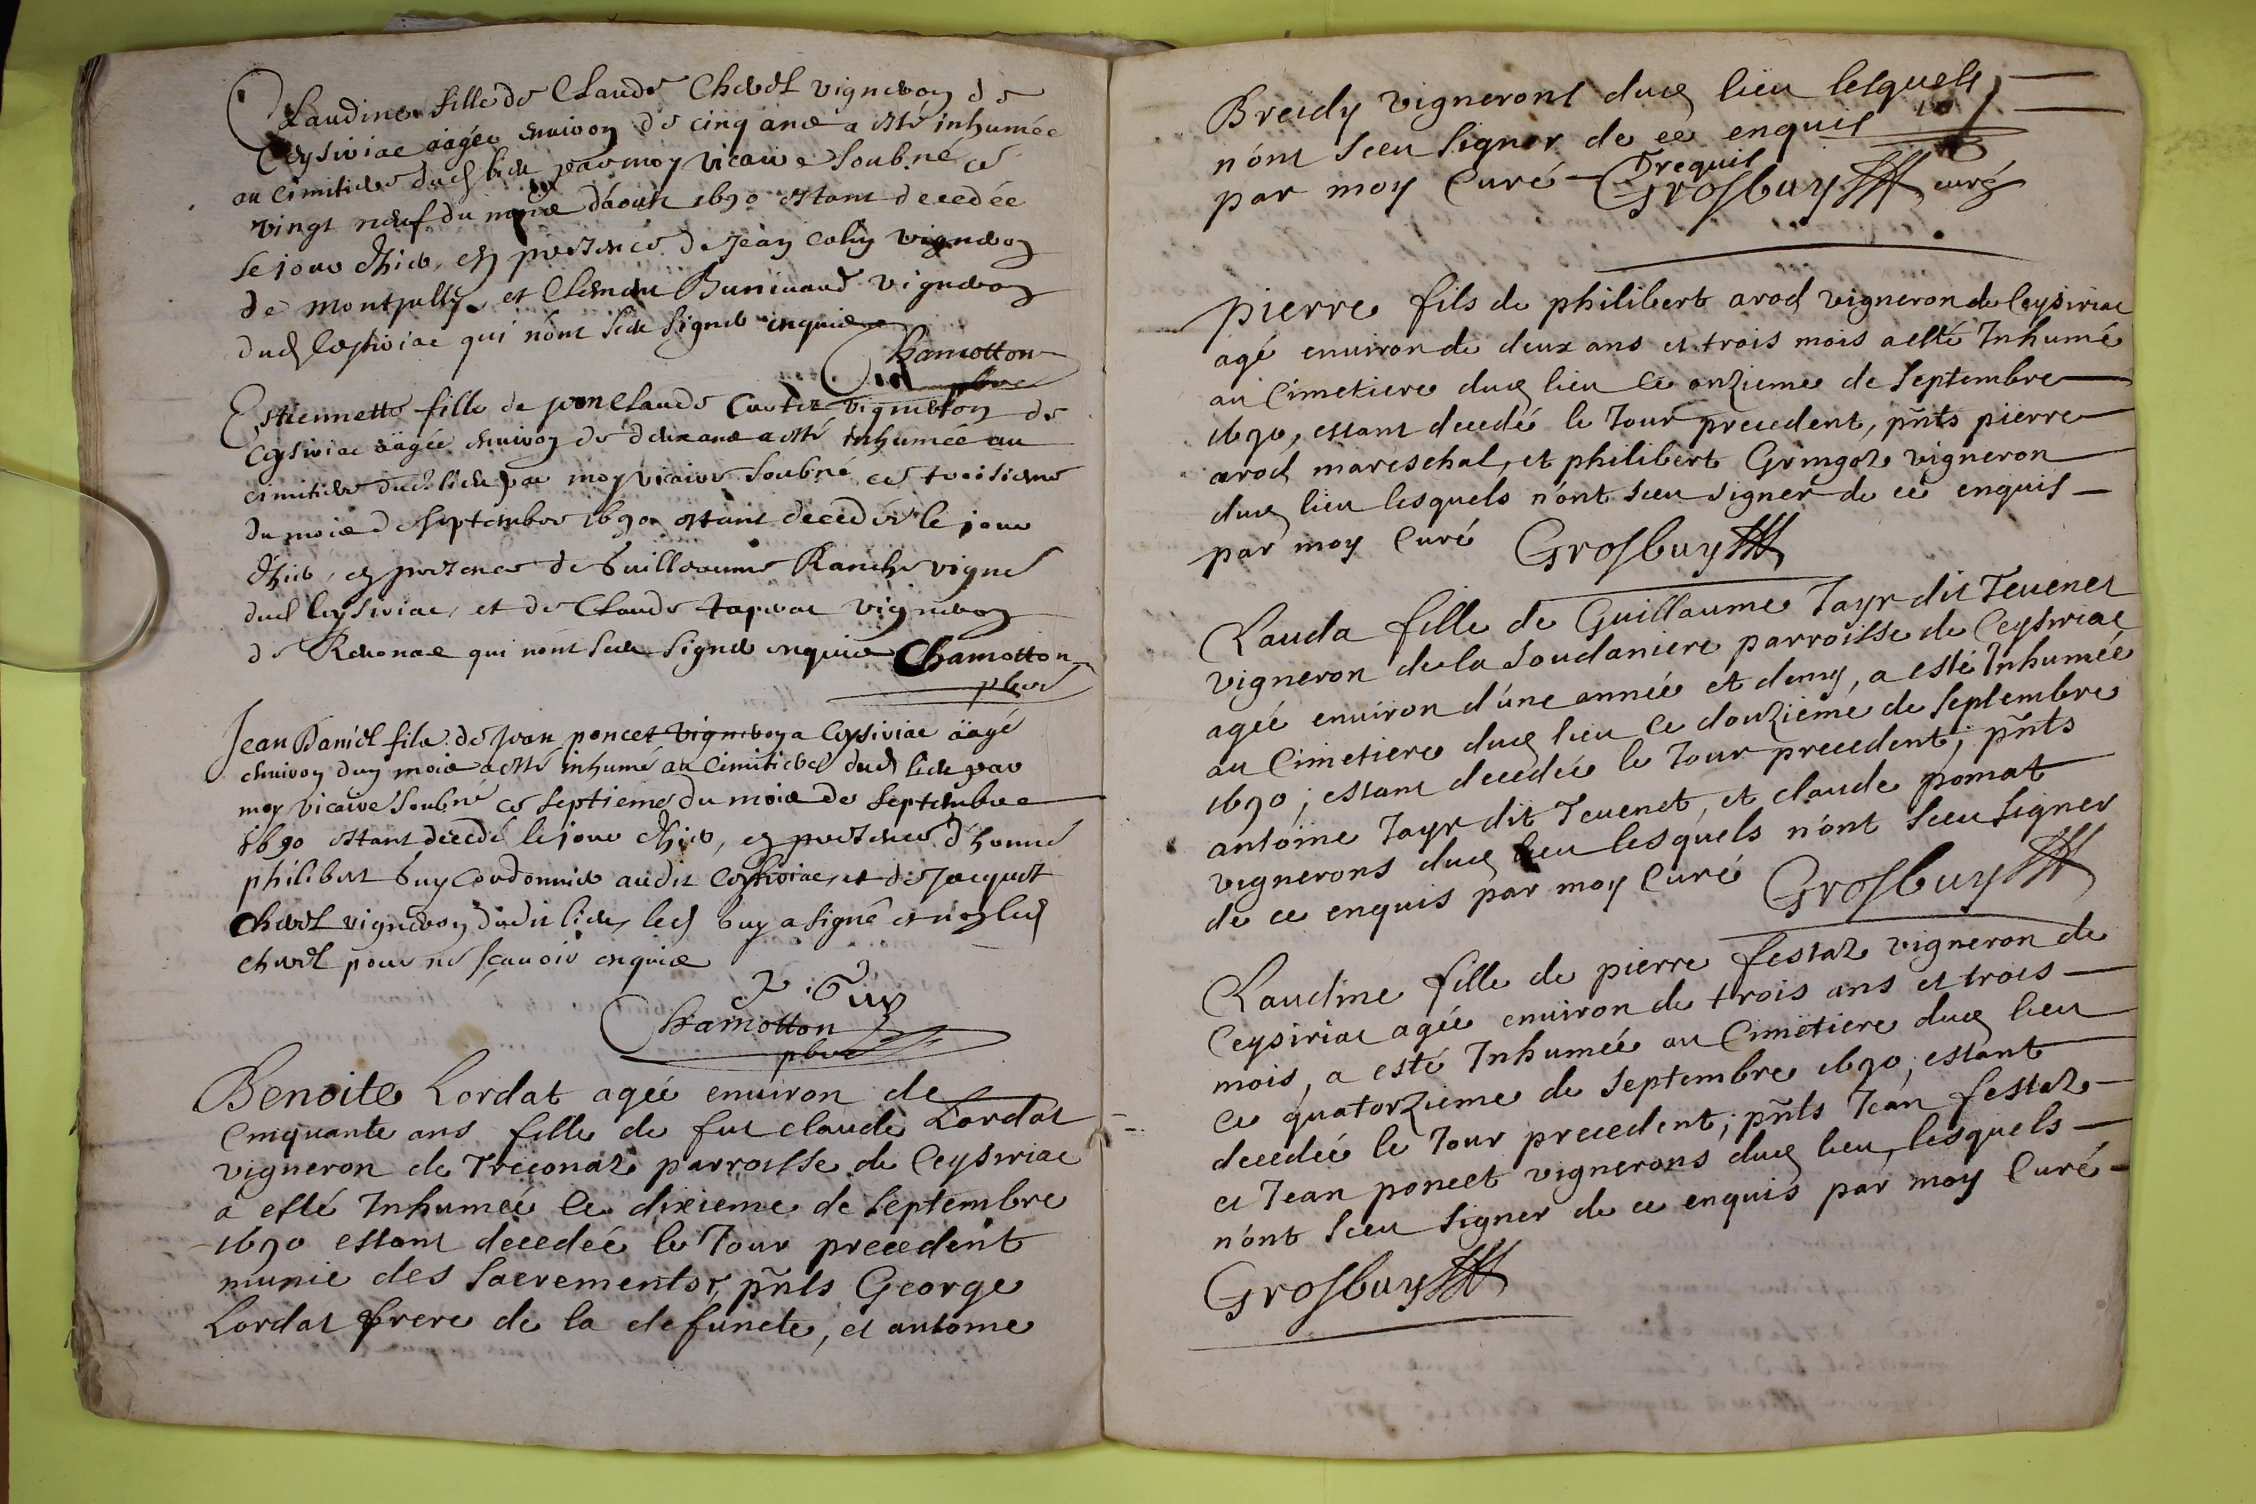 Claudine fille de Claude Chevel vigneron de
Ceysiriac äagée environ de cinq ans a esté inhumée
au cimitiere dud lieu par moy vicaire soubné ce
vingt neuf du mois d'aoust 1690 estant decedée
le jour d'hier, en presence de Jean Colin vigneron
de Montjully et Clement Bunivaud vigneron
dud Ceysiriac qui n'ont sceu signer enquis
Chamotton
pbre
Estiennette fille de Jean Claude Cartez vigneron de
Ceysiriac äagée environ de deux ans a esté inhumée au
cimitiere dud lieu par moy vicaire soubné ce troisieme
du mois de septembre 1690 estant decedée le jour
d'hier, en presence de Guilleaume Ranche vigne
dud Ceysiriac, et de Claude vigneron
de Revonas qui n'ont sceu signer enquis Chamotton
pbre
Jean Daniel fils de Jean poncet vigneron a Ceysiriac äagé
environ d'un mois a esté inhumé au Cimitiere dud lieu par
moy vicaire soubné ce septieme du mois de septembre
1690 estant decedé le jour d'hier, en presence d'honné
philibert Guy Cordonnier audit Ceysiriac, et de Jacques
Chevel vigneron dudit lieu, led Guy a signé et non led
chevel pour ne sçavoir enquis
P. Guy
Chamotton
pbre
Benoite Lordat agée environ de
Cinquante ans fille de fut claude Lordat
vigneron de Treconaz parroisse de Ceysiriac
a esté Inhumée ce dixieme de septembre
1690 estant decedée le Jour precedent
munie des sacrements, pnts George
Lordat frere de la defuncte, et antoine
Breidy vignerons dud lieu lesquels
n'ont sceu signer de ce enquis
par moy Curé requis Grosbuy curé
pierre fils de philibert arod vigneron de Ceysiriac
agé environ de deux ans et trois mois a esté Inhumé
au Cimetiere dud lieu ce onzieme de septembre
1690, estant decedé le Jour precedent, pnts pierre
arod mareschal, et philibert Gringoz vigneron
dud lieu lesquels n'ont sceu signer de ce enquis
par moy Curé Grosbuy
Clauda fille de Guillaume Tayr dit Tevenet
vigneron de la Soudaniere parroisse de Ceysiriac
agée environ d'une année et demy, a esté Inhumée
au Cimetiere dud lieu ce douzieme de septembre
1690, estant decedée le Jour precedent; pnts
antoine Tayr dit Tevenet, et claude pomat
vignerons dud lieu lesquels n'ont sceu signer
de ce enquis par moy Curé Grosbuy
Claudine fille de pierre festaz vigneron de
Ceysiriac agée environ de trois ans et trois
mois, a esté Inhumée au Cimetiere dud lieu
ce quatorzieme de septembre 1690, estant
decedée le Jour precedent; pnts Jean festaz
et Jean poncet vignerons dud lieu, lesquels
n'ont sceu signer de ce enquis par moy Curé
Grosbuy